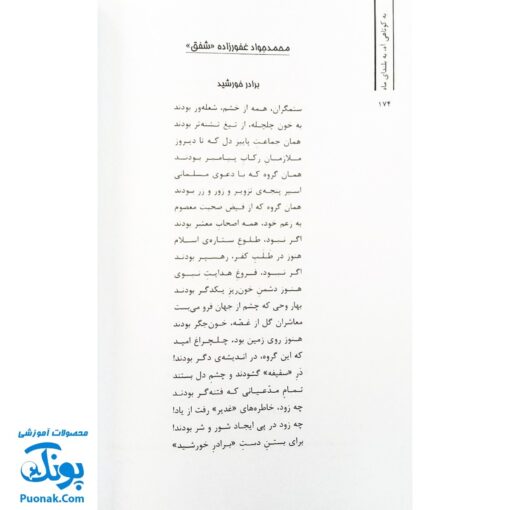 به کوتاهی آه، به بلندای ماه
۱۷۴
محمدجواد غفورزاده «شفق»
برادر خورشید
ستمگران، همه از خشم، شعله‌ور بودند
به خون چلچله، از تیغ تشنه‌تر بودند
همان جماعت پاییز دل که تا دیروز
ملازمان رکاب پیامبر بودند
همان گروه که با دعوی مسلمانی
اسیر پنجه‌ی تزویر و زور و زر بودند
همان گروه که از فیض صحبت معصوم
به زعم خود، همه اصحاب معتبر بودند
اگر نبود، طلوع ستاره‌ی اسلام
هنوز در طلب کفر، رهسپر بودند
اگر نبود، فروغ هدایت نبوی
هنوز دشمن خون‌ریز یکدگر بودند
بهار وحی که چشم از جهان فرو می‌بست
معاشران گل از غصّه، خون‌جگر بودند
هنوز روی زمین بود، چلچراغ امید
که این گروه، در اندیشه‌ی دگر بودند!
درِ «سقیفه» گشودند و چشم دل بستند
تمام مدّعیانی که فتنه‌گر بودند
چه زود، خاطره‌های «غدیر» رفت از یاد!
چه زود در پی ایجاد شور و شر بودند!
برای بستن دستِ «برادرِ خورشید»
محصولات آموزشی
پونک
Puonak.Com